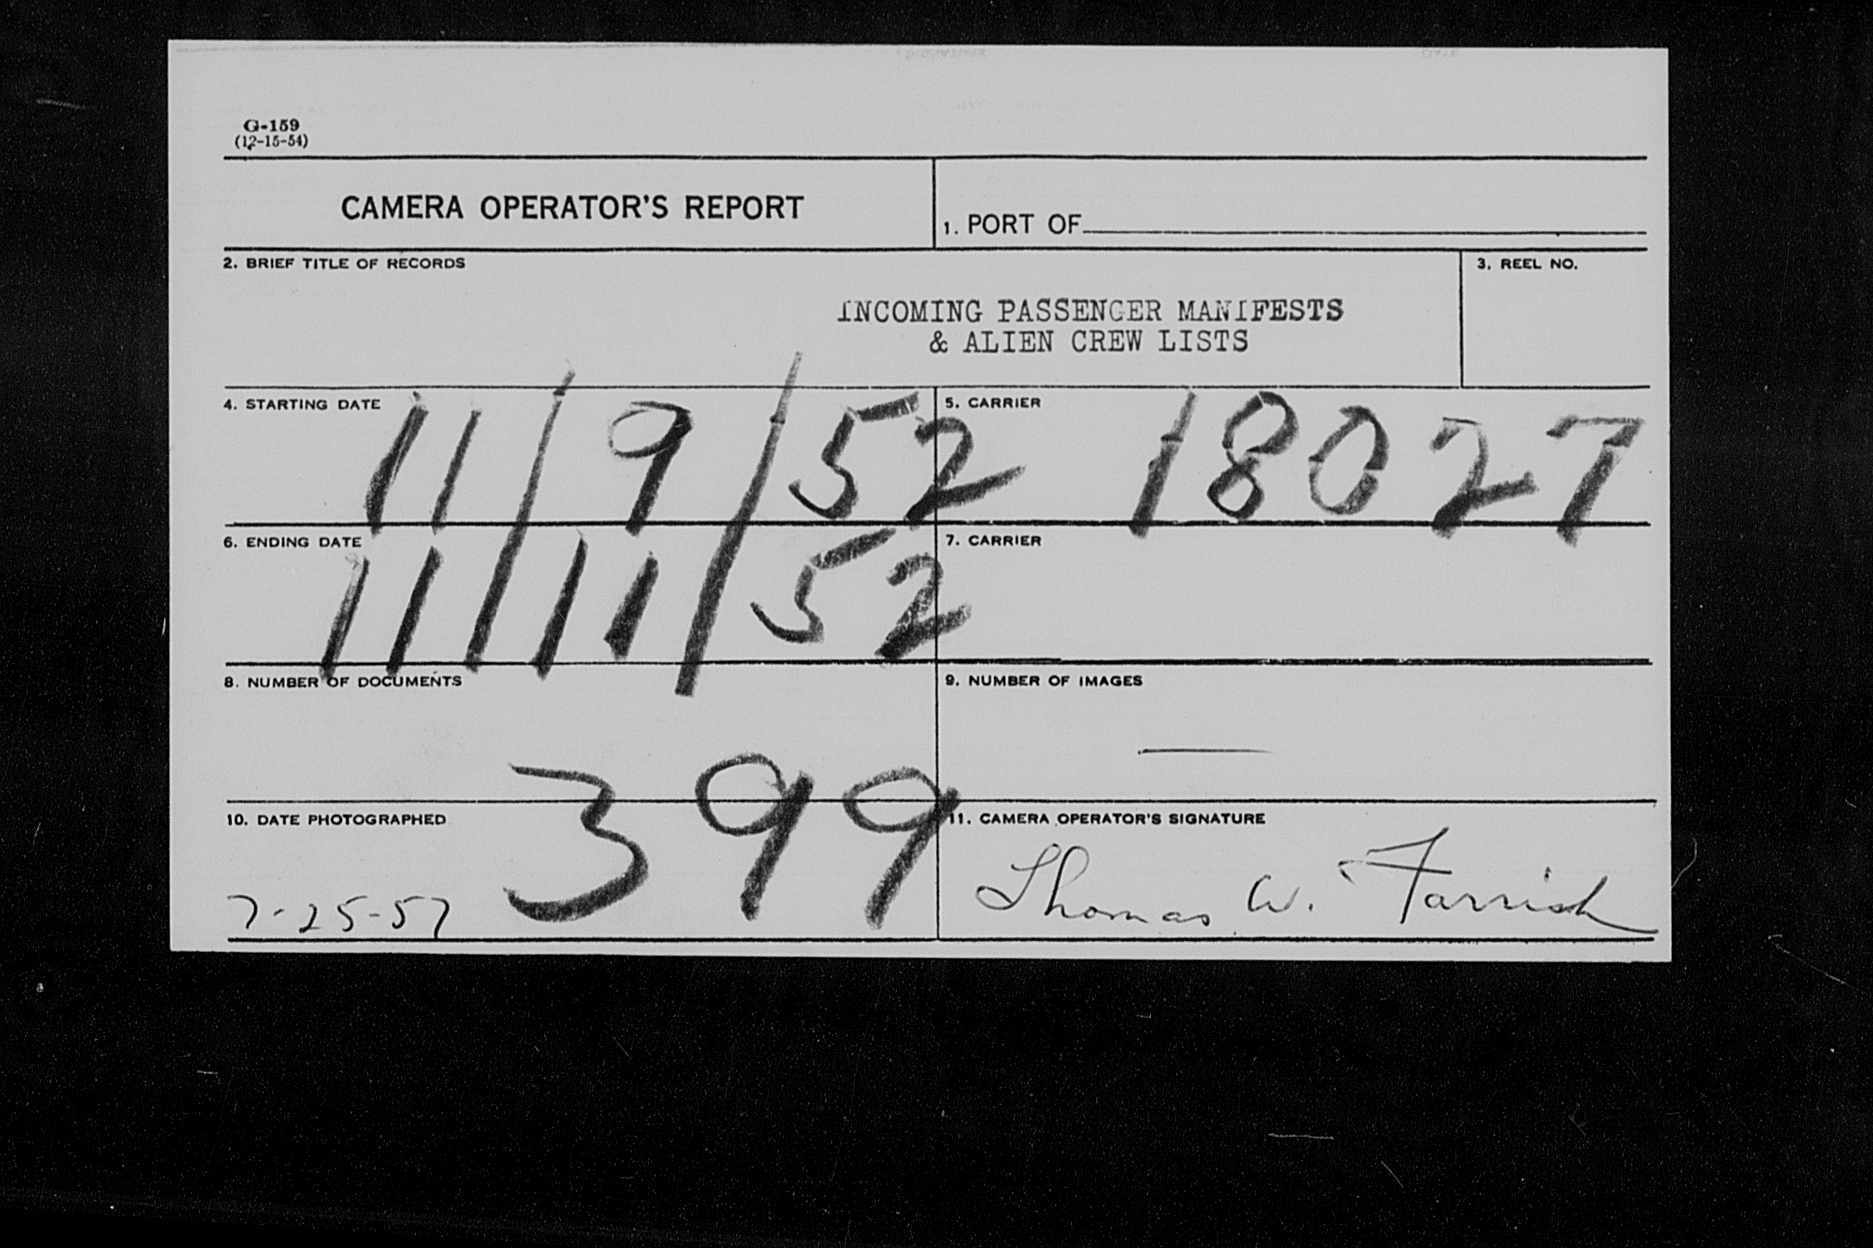 G-159
(12-15-54)
CAMERA OPERATOR'S REPORT
1. PORT OF
2. BRIEF TITLE OF RECORDS
3. REEL NO.
INCOMING PASSENGER MANIFESTS
& ALIEN CREW LISTS
4. STARTING DATE
11/9/52
5. CARRIER
18027
6. ENDING DATE
11/11/52
7. CARRIER
8. NUMBER OF DOCUMENTS
399
9. NUMBER OF IMAGES
10. DATE PHOTOGRAPHED
7-25-57
11. CAMERA OPERATOR'S SIGNATURE
Thomas W. Farrish